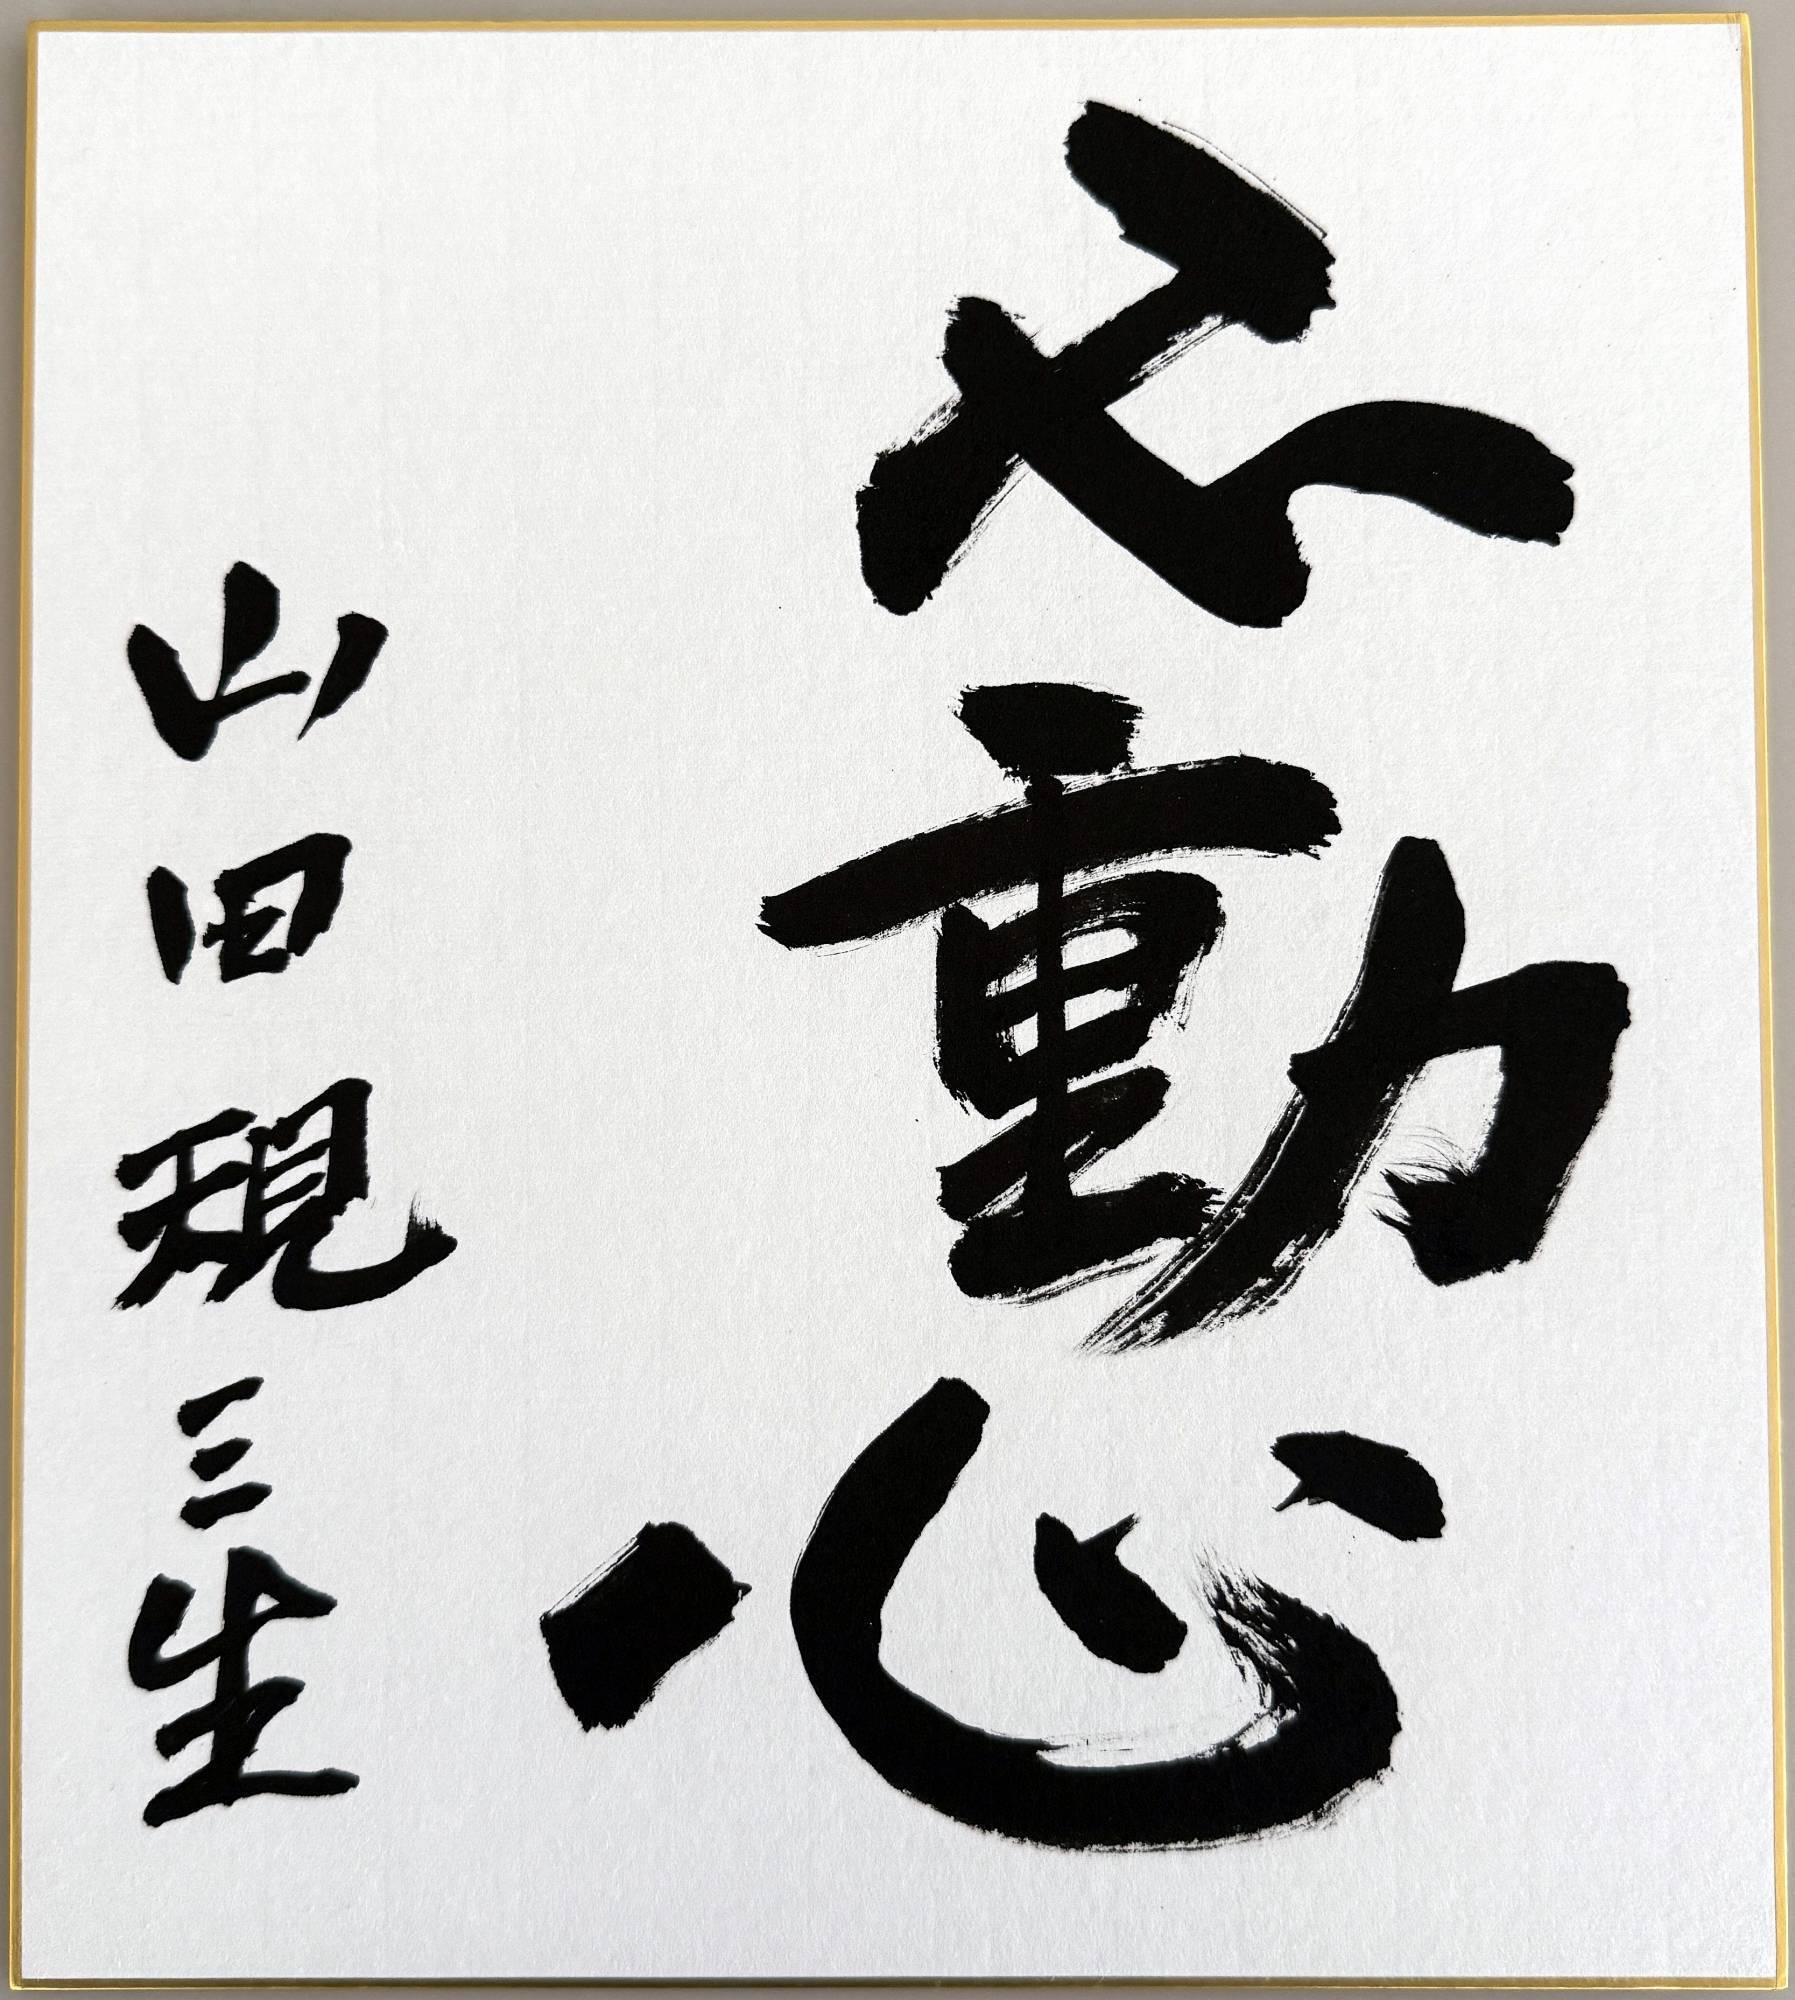 不動心
山田現三生